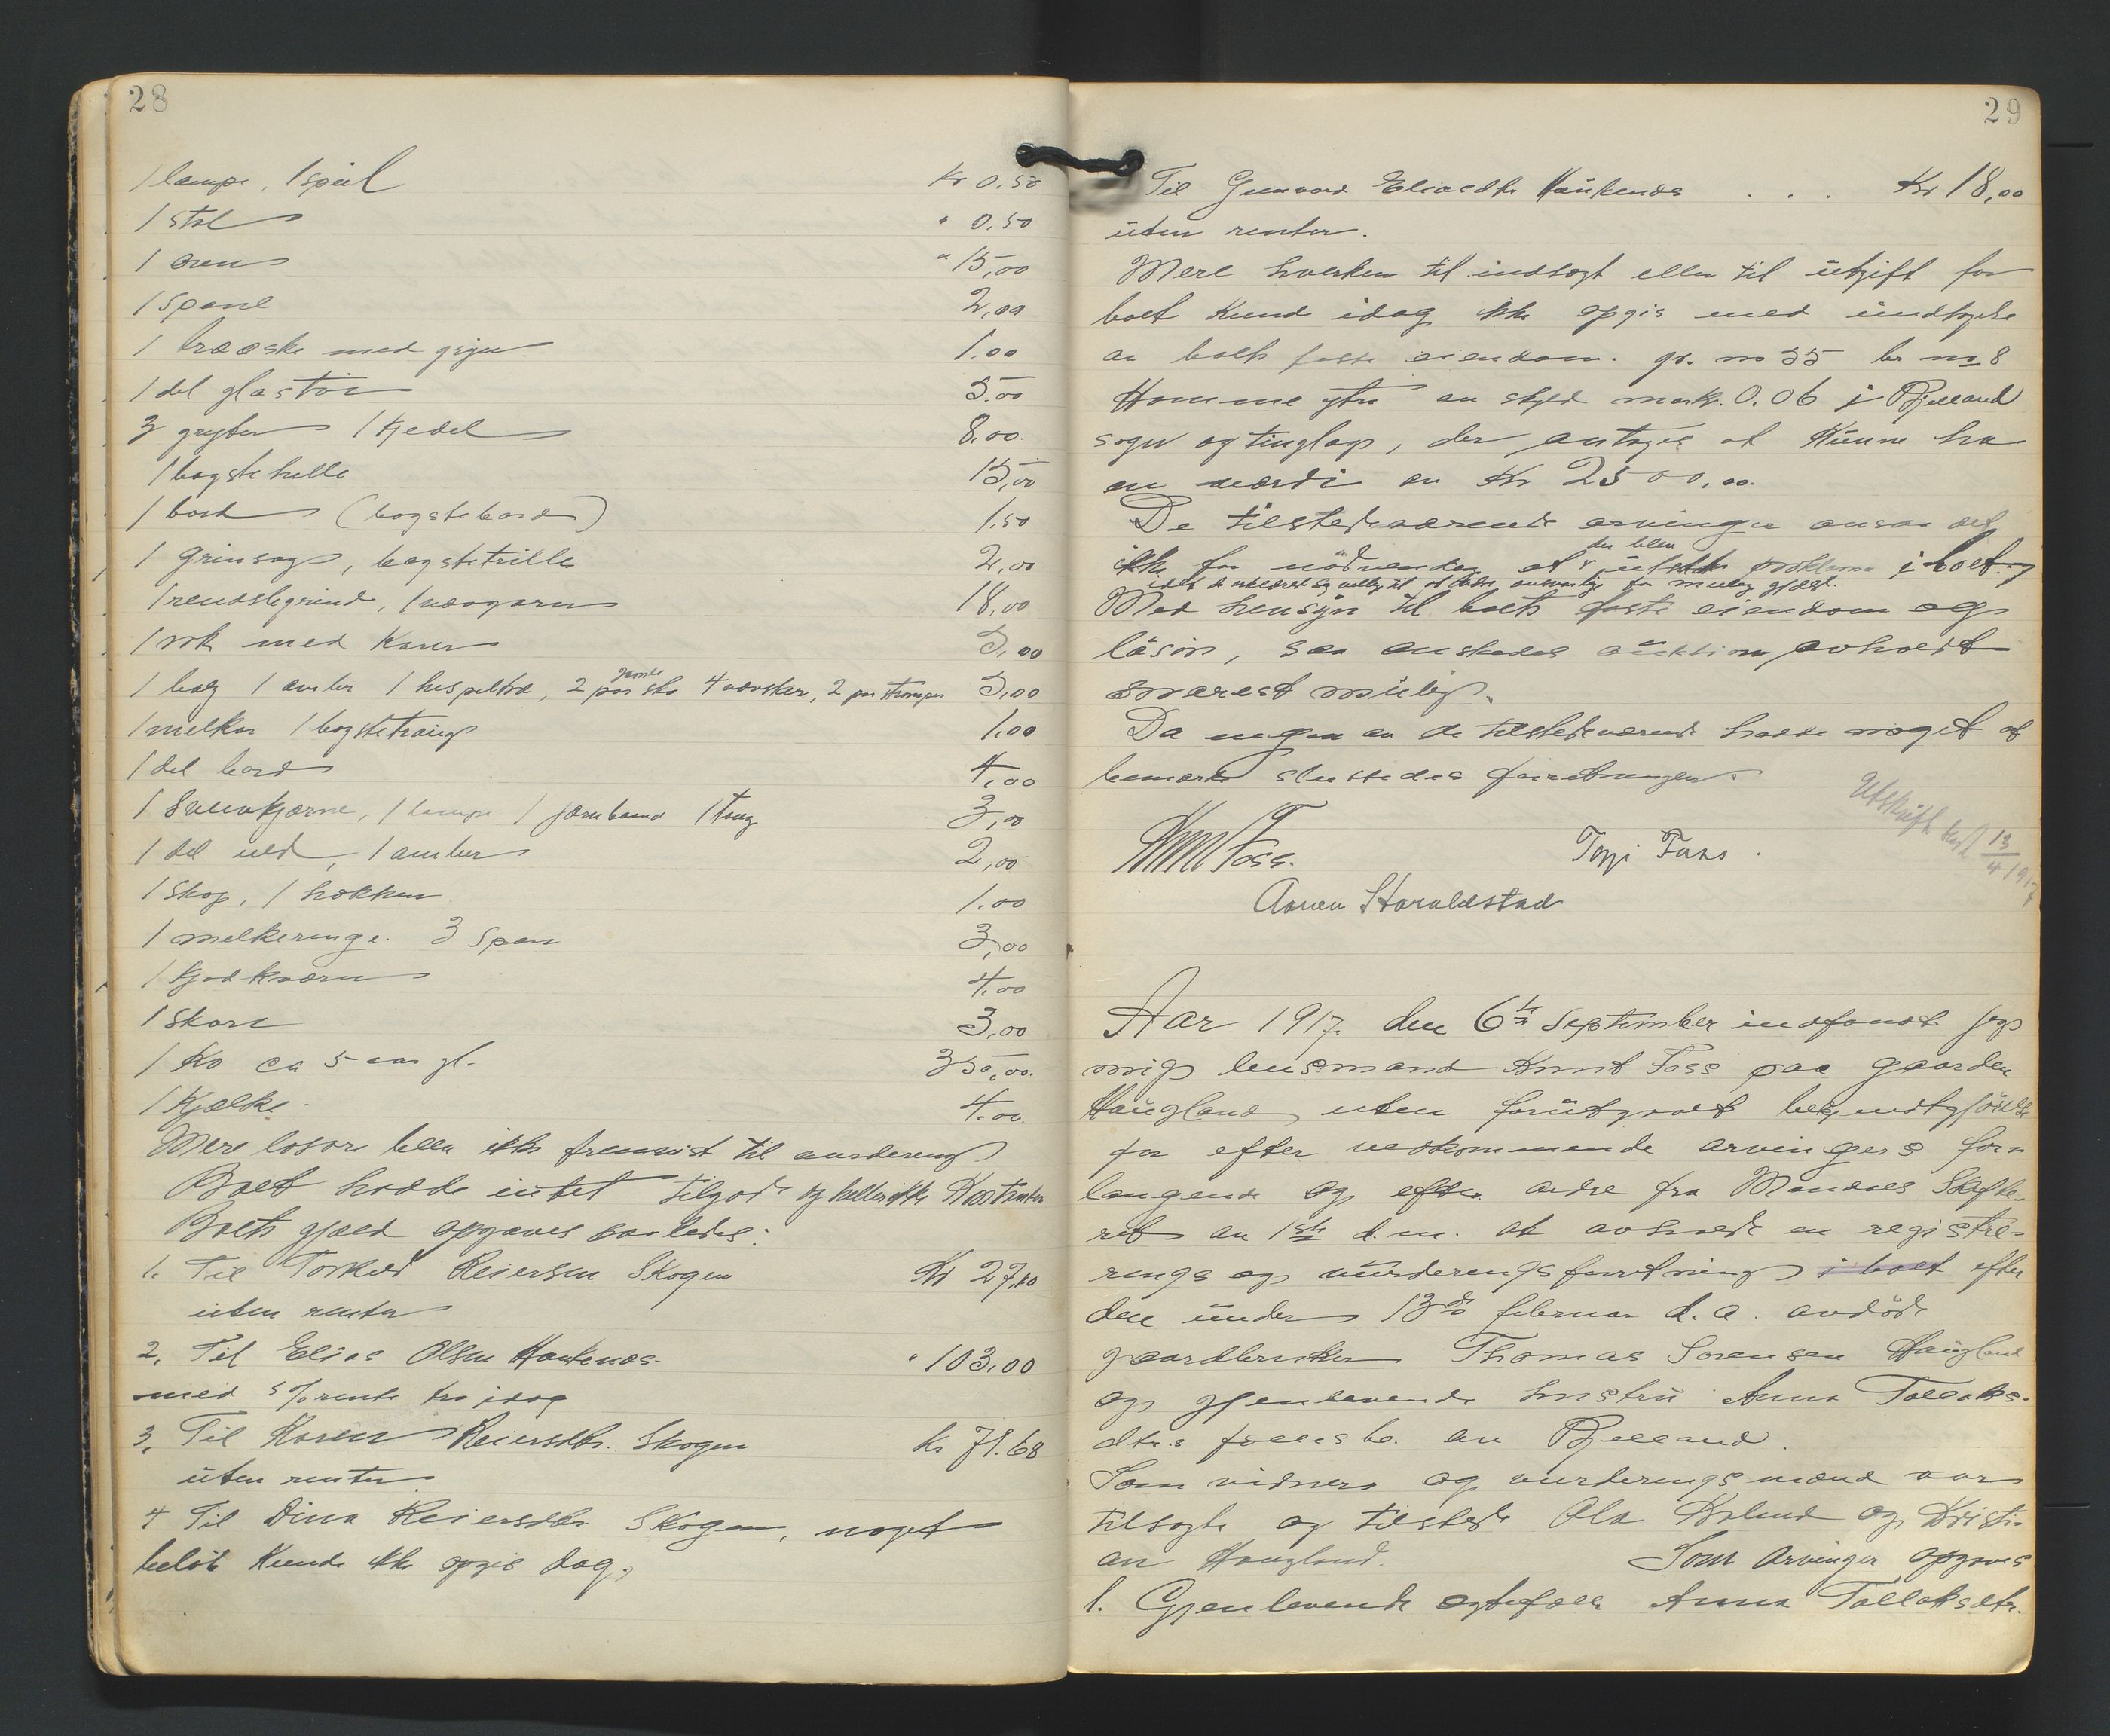 28
1 lampe, 1 speil Kr 0.50
1 stol " 0.50
1 oven " 15,00
1 spand 2,00
1 trææske med gryn 1.00
1 del glastøi 5.00
3 gryter 1 kjedel 8,00.
1 bagstehelle 15,00
1 bord (bagstebord) 1.50
1 grinsag, bagstetrille 2,00
1 rendslegrind, 1 vævgarn 18,00
1 rok med karer 5,00
1 balg 1 amber 1 hespeltræ, 2 par gamle sko 4 vævsker, 2 par strømper 5,00
1 melkar 1 bagstetraug 1.00
1 del bord 4,00
1 Svenkjærne, 1 lampe 1 jernband 1 tang 3,00
1 del uld, 1 amber 2,00
1 skap, 1 bokken 1.00
1 melkeringe. 3 span 3,00
1 kjødkværn 4.00
1 skare 3,00
1 Ko ca 5 aar gl. 350,00.
1 kjælke. 4.00
Mere løsøre blev ikke fremvist til vurdering
Boet hadde intet tilgode og heller ikke Kontanter
Boets gjæld opgaves saaledes:
1. Til Torkild Reiersen Skogen Kr 27,10
uten renter
2, Til Elias Olsen Haukenæs. " 103,00
med 5 % rente fra idag
3, Til Karen Reiersdtr. Skogen Kr 71.68
uten renter
4 Til Dina Reiersdtr Skogen, noget
beløb kunde ikke opgis dag,
29
Til Gunvor Eliasdtr Haukenæs . . . Kr 18,00
uten renter.
Mere hverken til indtægt eller til utgift for
boet kunde idag ikke opgis med undtagelse
av boets faste eiendom. gr. no 35 br no 8
Homme ytre av skyld mark. 0.06 i Bjelland
sogn og tinglag, der antages at kunne ha
en værdi av Kr 2500,00.
De tilstedeværende arvinger ansaa det
ikke for nødvendig at der blev utstedt proklama i boet,
idet de erklærte sig villig til at være ansvarlig for mulig gjæld.
Med hensyn til boets faste eiendom og
løsøre, saa ønskedes auktion avholdt
snarest mulig.
Da ingen av de tilstedeværende hadde noget at
bemerke sluttedes forretningen.
Utskrift sendt 13/4 1917
Knut Foss. Torji Fuss.
Aanen Haraldstad
Aar 1917 den 6te September indfandt jeg
mig lensmand Knut Foss paa gaarden
Haugland uten forutgaaet bekjendtgjørelse
for efter vedkommende arvingers for=
langende og efter ordre fra Mandals Skifte-
ret av 1ste d.m. at avholde en registre=
rings og vurderingsforretning i boet efter
den under 13de februar d.a. avdøde
gaardbruker Thomas Sørensen Haugland
og gjenlevende hustru Anna Tallaks-
dtr.s fællesbo. av Bjelland.
Som vidner og vurderingsmænd var
tilsagte og tilstede Ola Høland og Kristi=
an Haugland. Som Arvinger opgaves
1. Gjenlevende egtefælle Anna Tallaksdtr.